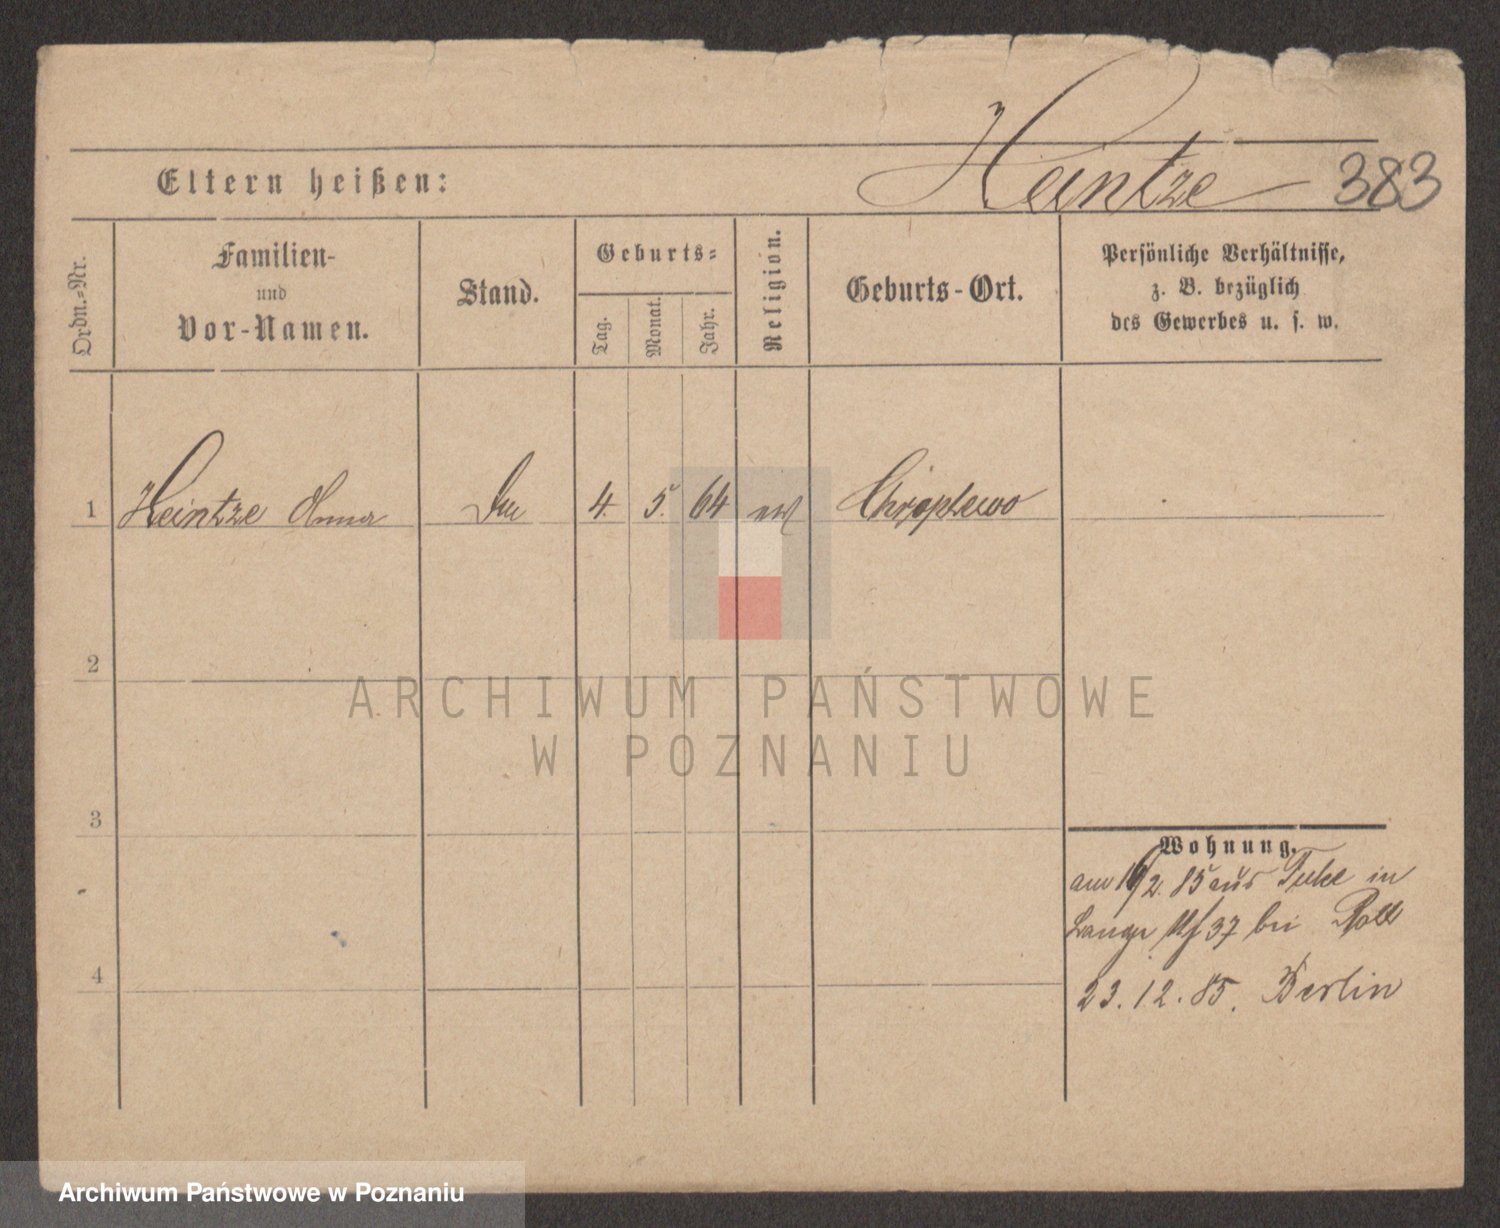 Heintze 383
Eltern heißen:
Ordn.=Nr.
Familien-
und
Vor-Namen.
Stand.
Geburts=
Tag.
Monat.
Jahr.
Religion.
Geburts-Ort.
Persönliche Verhältnisse,
z. B. bezüglich
des Gewerbes u. s. w.
1 Heintze Anna 4. 5. 64
2
3
4
Wohnung.
am 16/2. 85 aus in
Lange 37 bei
23. 12. 85. Berlin
ARCHIWUM PAŃSTWOWE
W POZNANIU
Archiwum Państwowe w Poznaniu